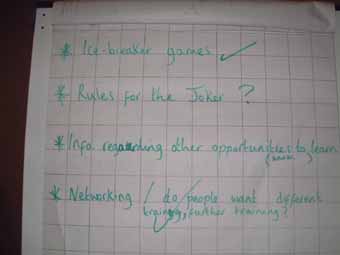 * Ice-breaker games ✓
* Rules for the Joker ?
* Info regarding other opportunities to learn
* Networking / do people want different
training, further training?